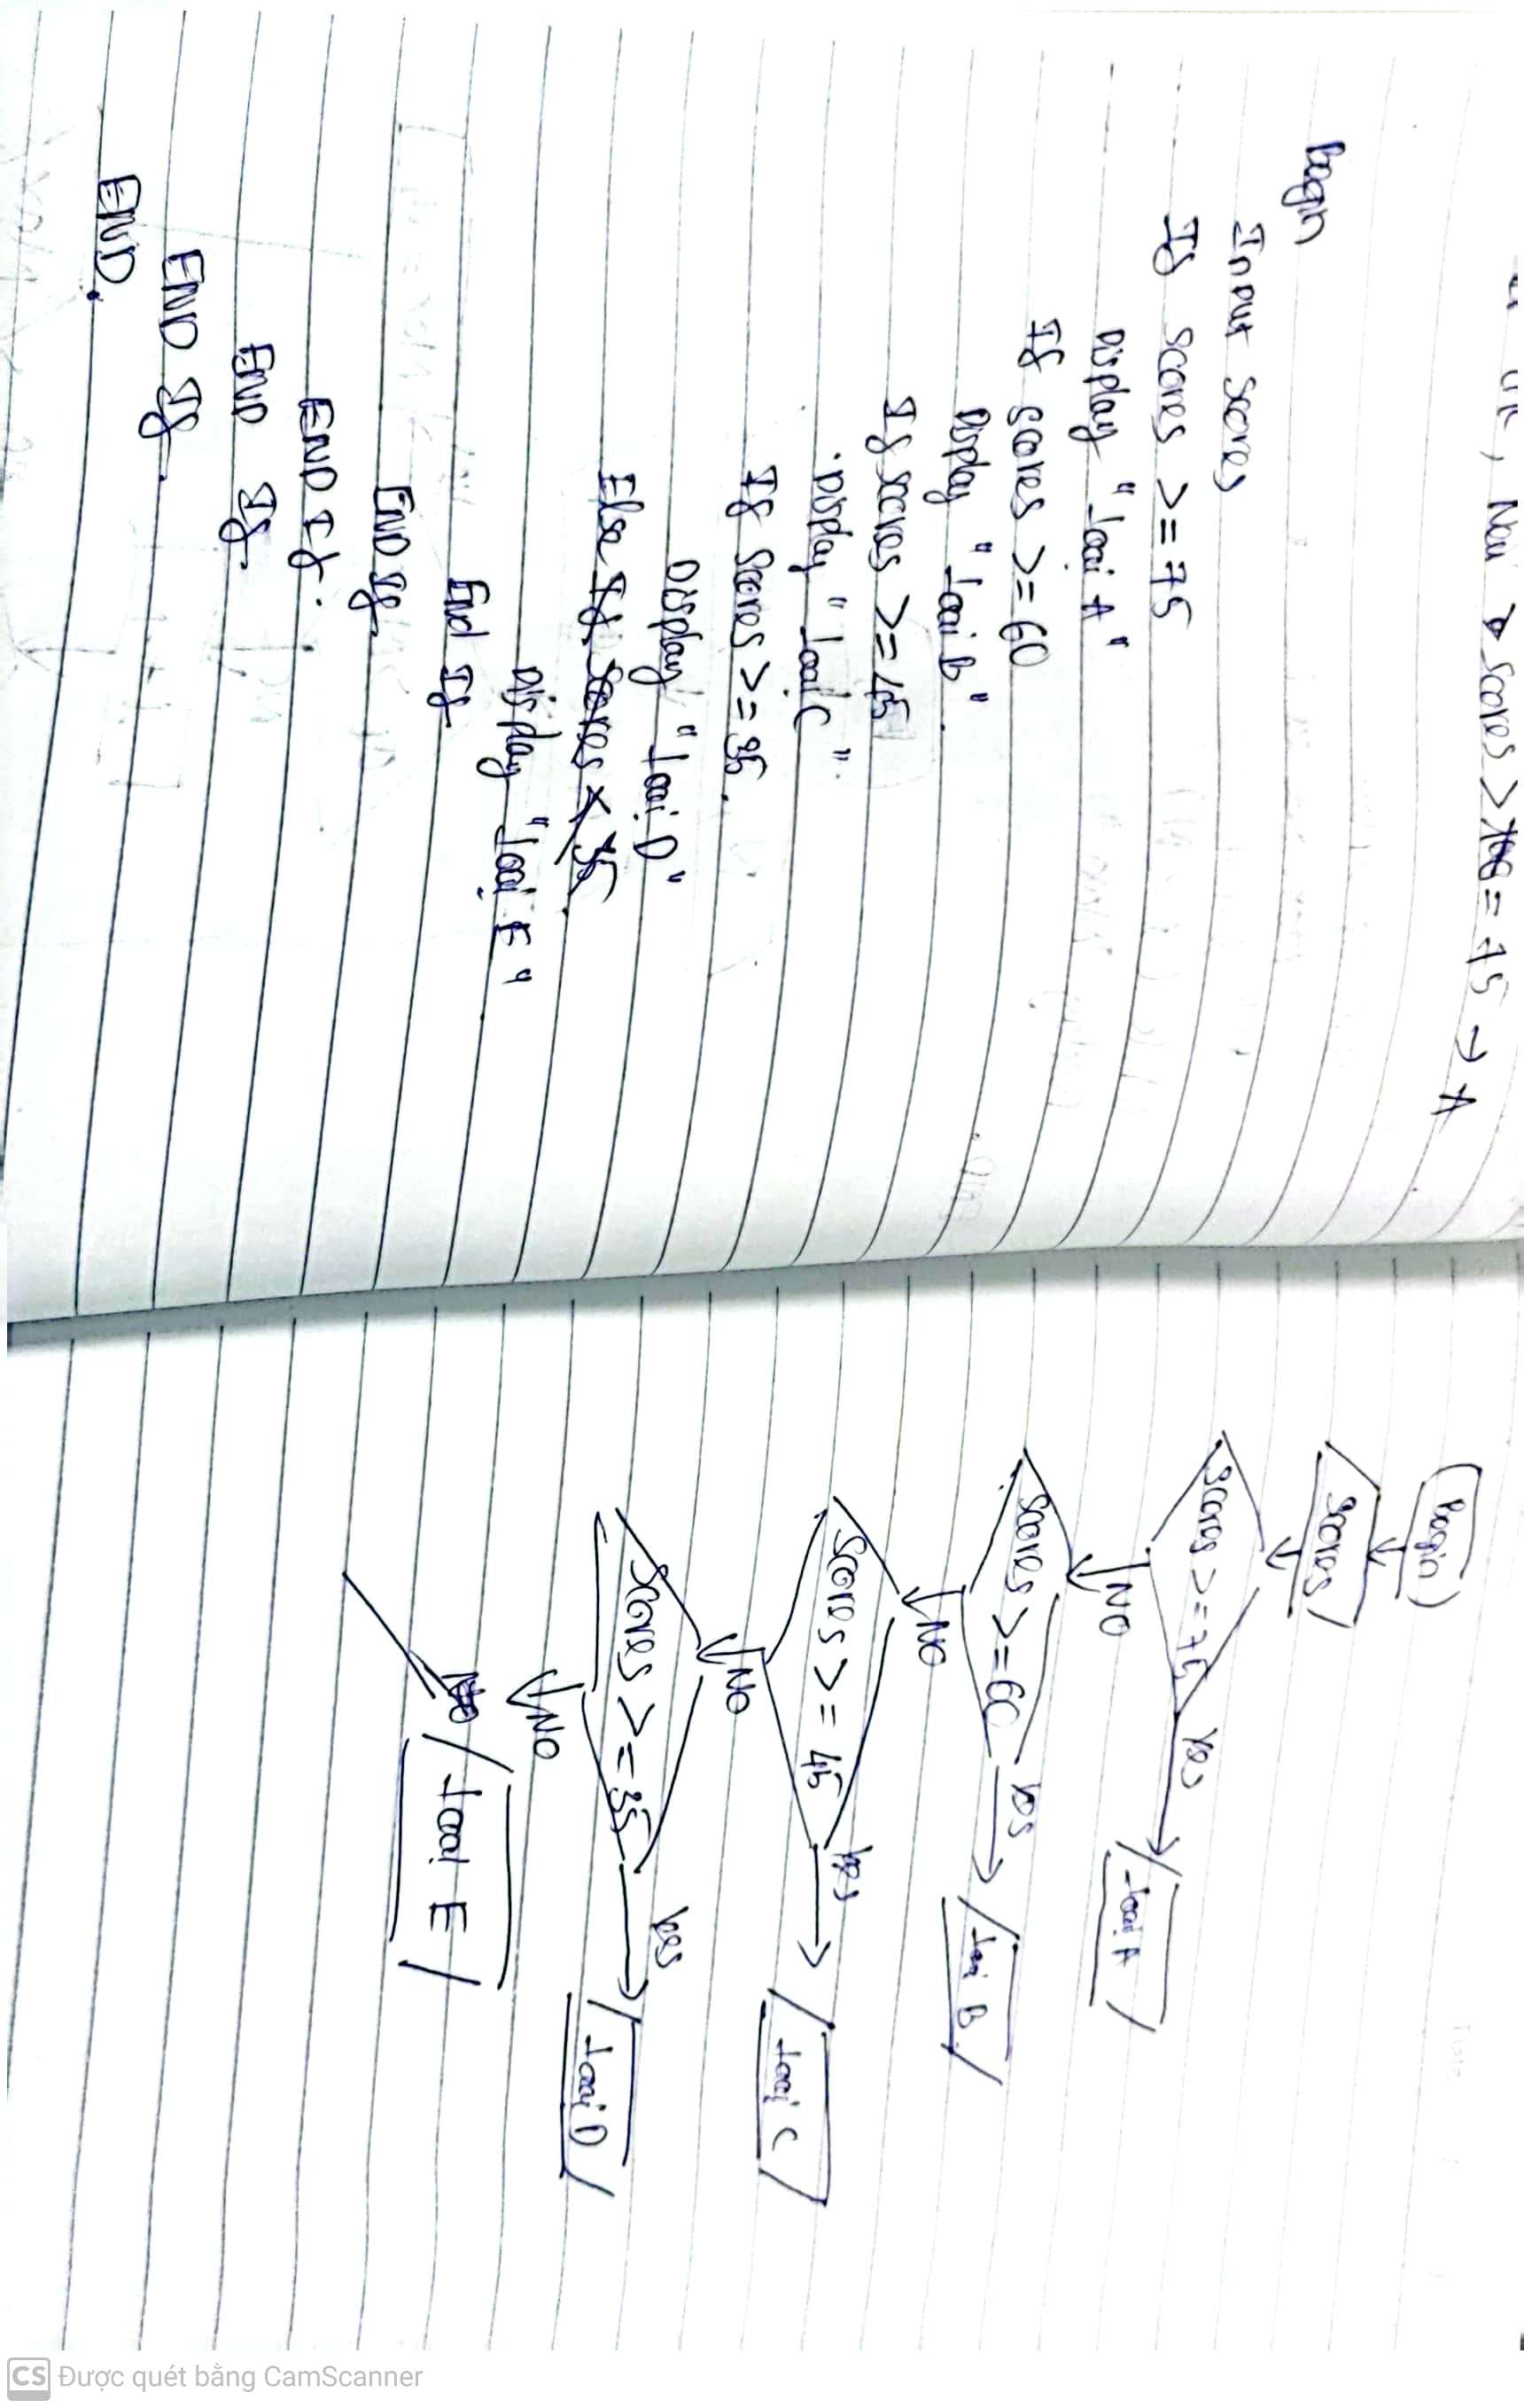 , Nếu Scores > = 75 → A
Begin
Input scores
If scores >= 75
Display "Loại A"
If scores >= 60
Display "Loại B".
If scores >= 45
Display "Loại C".
If scores >= 35.
Display "Loại D"
Else If scores < 35
Display "Loại E"
End If
END If
END If.
END If
END If
END.
Begin
Scores
Scores >= 75
Yes
Loại A
NO
Scores >= 60
Yes
Loại B
NO
Scores >= 45
Yes
Loại C
NO
Scores >= 35
Yes
Loại D
NO
Loại E
CS Được quét bằng CamScanner